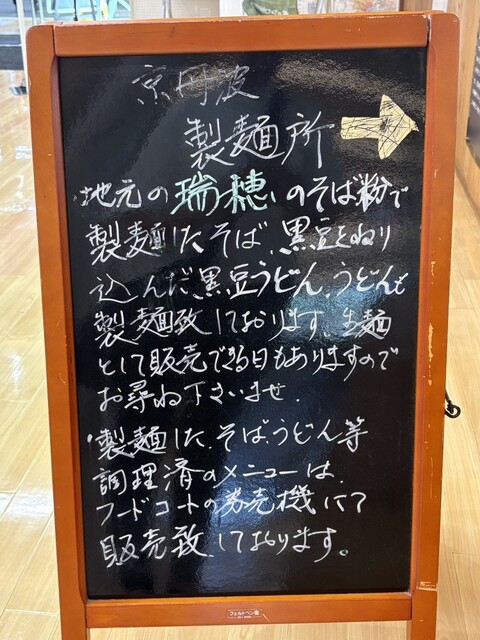 京丹波
製麺所
地元の瑞穂のそば粉で
製麺したそば、黒豆をねり
込んだ黒豆うどん、うどんも
製麺致しております、生麺
として販売できる日もありますので
お尋ね下さいませ.
・製麺した、そば、うどん等
調理済のメニューは、
フードコートの券売機にて
販売致しております。
フェルトペン用